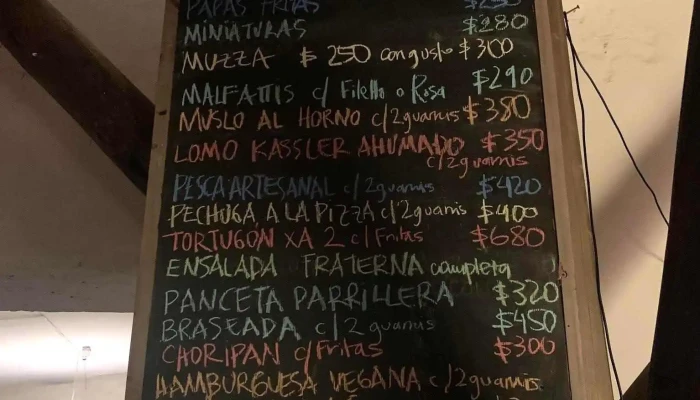 PAPAS FRITAS $250
MINIATURAS $280
MUZZA $250 con gusto $300
MALFATTIS c/ Filetto o Rosa $290
MUSLO AL HORNO c/2guarnis $380
LOMO KASSLER AHUMADO $350
c/2guarnis
PESCA ARTESANAL c/2guarnis $420
PECHUGA A LA PIZZA c/2 guarnis $400
TORTUGON XA 2 c/ Fritas $680
ENSALADA FRATERNA completa
PANCETA PARRILLERA $320
BRASEADA c/2 guarnis $450
CHORIPAN c/Fritas $300
HAMBURGUESA VEGANA c/2guarnis